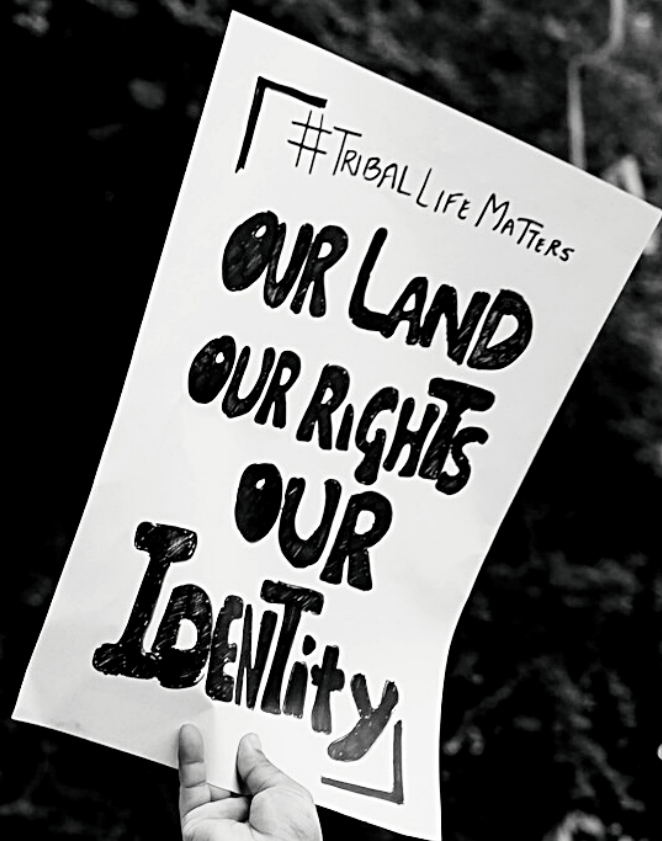 #TRIBALLIFEMATTERS
OUR LAND
OUR RIGHTS
OUR
IDENTity